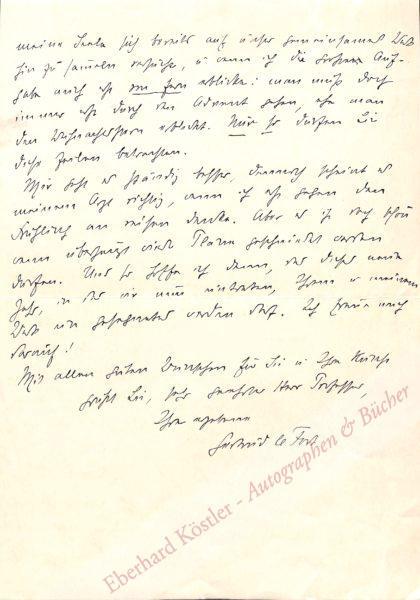 meine Seele sich bereits auf unser gemeinsames Werk
hin zu sammeln versucht, u. wenn ich die großen Auf-
gabe auch erst von fern erblicke: man muß doch
immer erst durch den Advent gehen, ehe man
den Weihnachtsstern erblickt. Nur so dürfen Sie
diese Zeilen betrachten.
Mir geht es ständig besser, dennoch scheint es
meinem Arzt richtig, wenn ich erst gegen den
Frühling an reisen denke. Aber es ist auch schön
wenn überhaupt wieder Pläne geschmiedet werden
dürfen. Und so hoffe ich denn, daß dieses neue
Jahr, in das wir nun eintreten, Ihnen u. meinem
Werk ein gesegnetes werden darf. Ich freue mich
darauf!
Mit allen guten Wünschen für Sie u. Ihre
grüßt Sie, sehr geehrter Herr Professor
Ihre ergebene
Gertrud le Fort
Eberhard Köstler - Autographen & Bücher